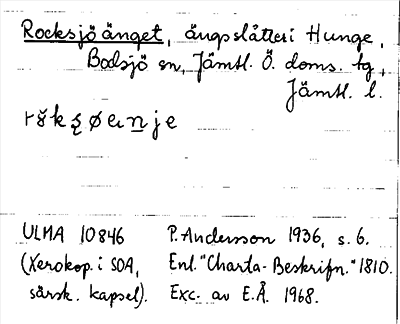 Rocksjöänget, ängsslåtter i Hunge,
Bodsjö sn, Jämtl. Ö. doms. tg,
Jämtl. l.
ULMA 10846 P. Andersson 1936, s. 6.
(Xerokop. i SOA, Enl. "Charta-Beskrifn." 1810.
särsk. kapsel). Exc. av E.Å. 1968.